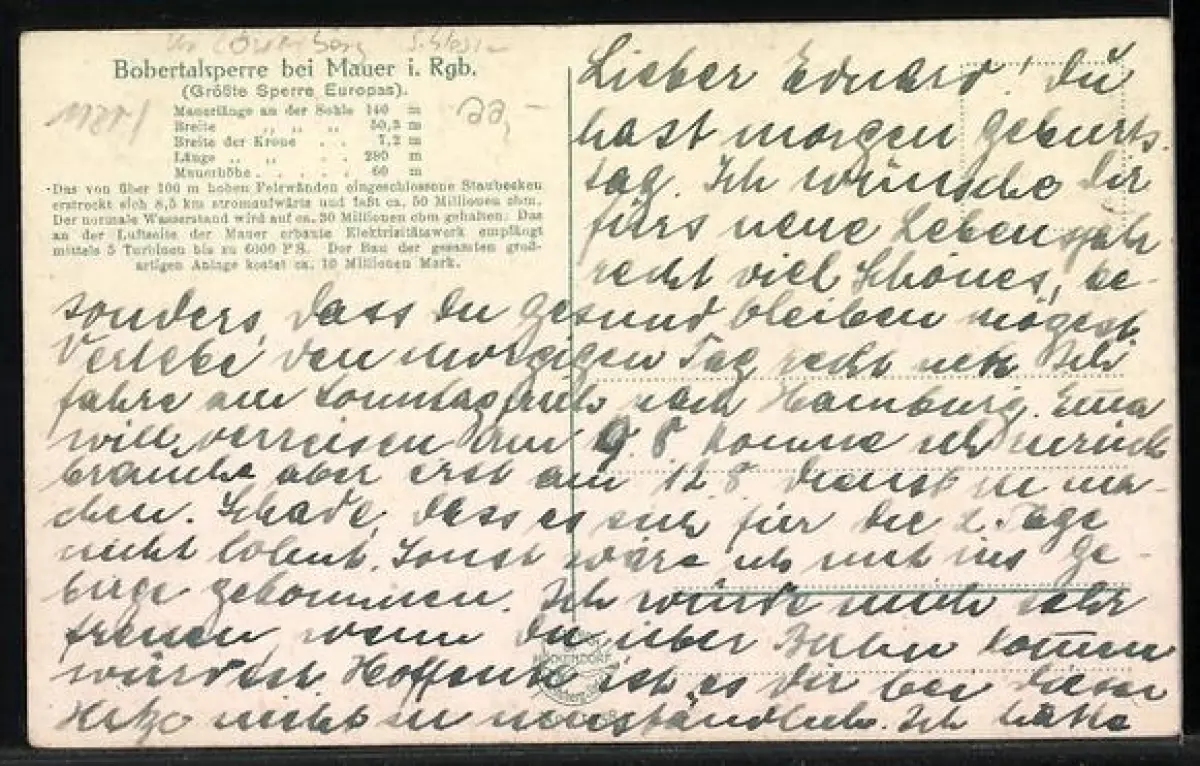 Bobertalsperre bei Mauer i. Rgb.
(Größte Sperre Europas).
Mauerlänge an der Sohle 140 m
Breite „ „ „ 50,5 m
Breite der Krone . . 7,2 m
Länge „ „ . . 280 m
Mauerhöhe . . . . . 60 m
Das von über 100 m hohen Felswänden eingeschlossene Staubecken
erstreckt sich 8,5 km stromaufwärts und faßt ca. 50 Millionen cbm.
Der normale Wasserstand wird auf ca. 30 Millionen cbm gehalten. Das
an der Luftseite der Mauer erbaute Elektrizitätswerk empfängt
mittels 5 Turbinen bis zu 6000 PS. Der Bau der gesamten groß-
artigen Anlage kostet ca. 10 Millionen Mark.
22,-
Lieber Eduard! Du
hast morgen Geburts-
tag. Ich wünsche Dir
fürs neue Lebensjahr
recht viel Schönes, be-
sonders, dass du gesund bleiben mögest.
Verlebe den morgigen Tag recht nett. Ich
fahre am Sonntag früh nach Hamburg. Erna
will verreisen. Am 9.8. komme ich zurück
brauche aber erst am 12.8 Dienst zu ma-
chen. Schade, dass es sich für die 2 Tage
nicht lohnt. Sonst wäre ich mit ins Ge-
birge gekommen. Ich würde mich sehr
freuen, wenn Du über kommen
würdest. Hoffentl. ist es Dir bei dieser
Hitze nicht zu umständlich. Ich hätte